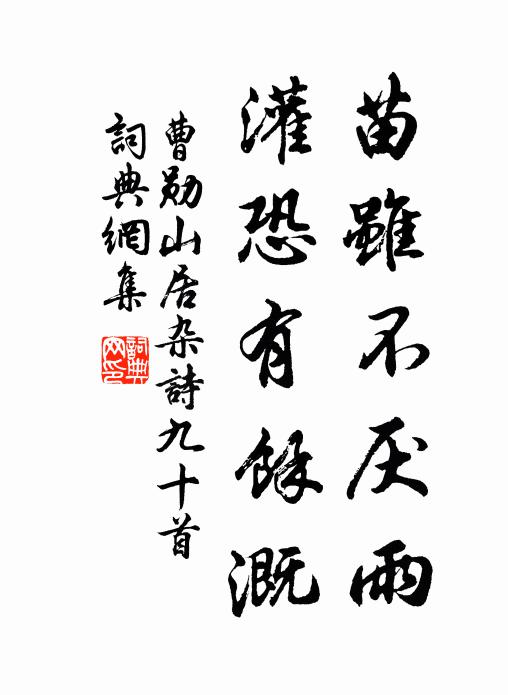 苗雖不厌雨
灌恐有餘溉
曹勋山居杂詩九十首
詞典網集
詞典网印